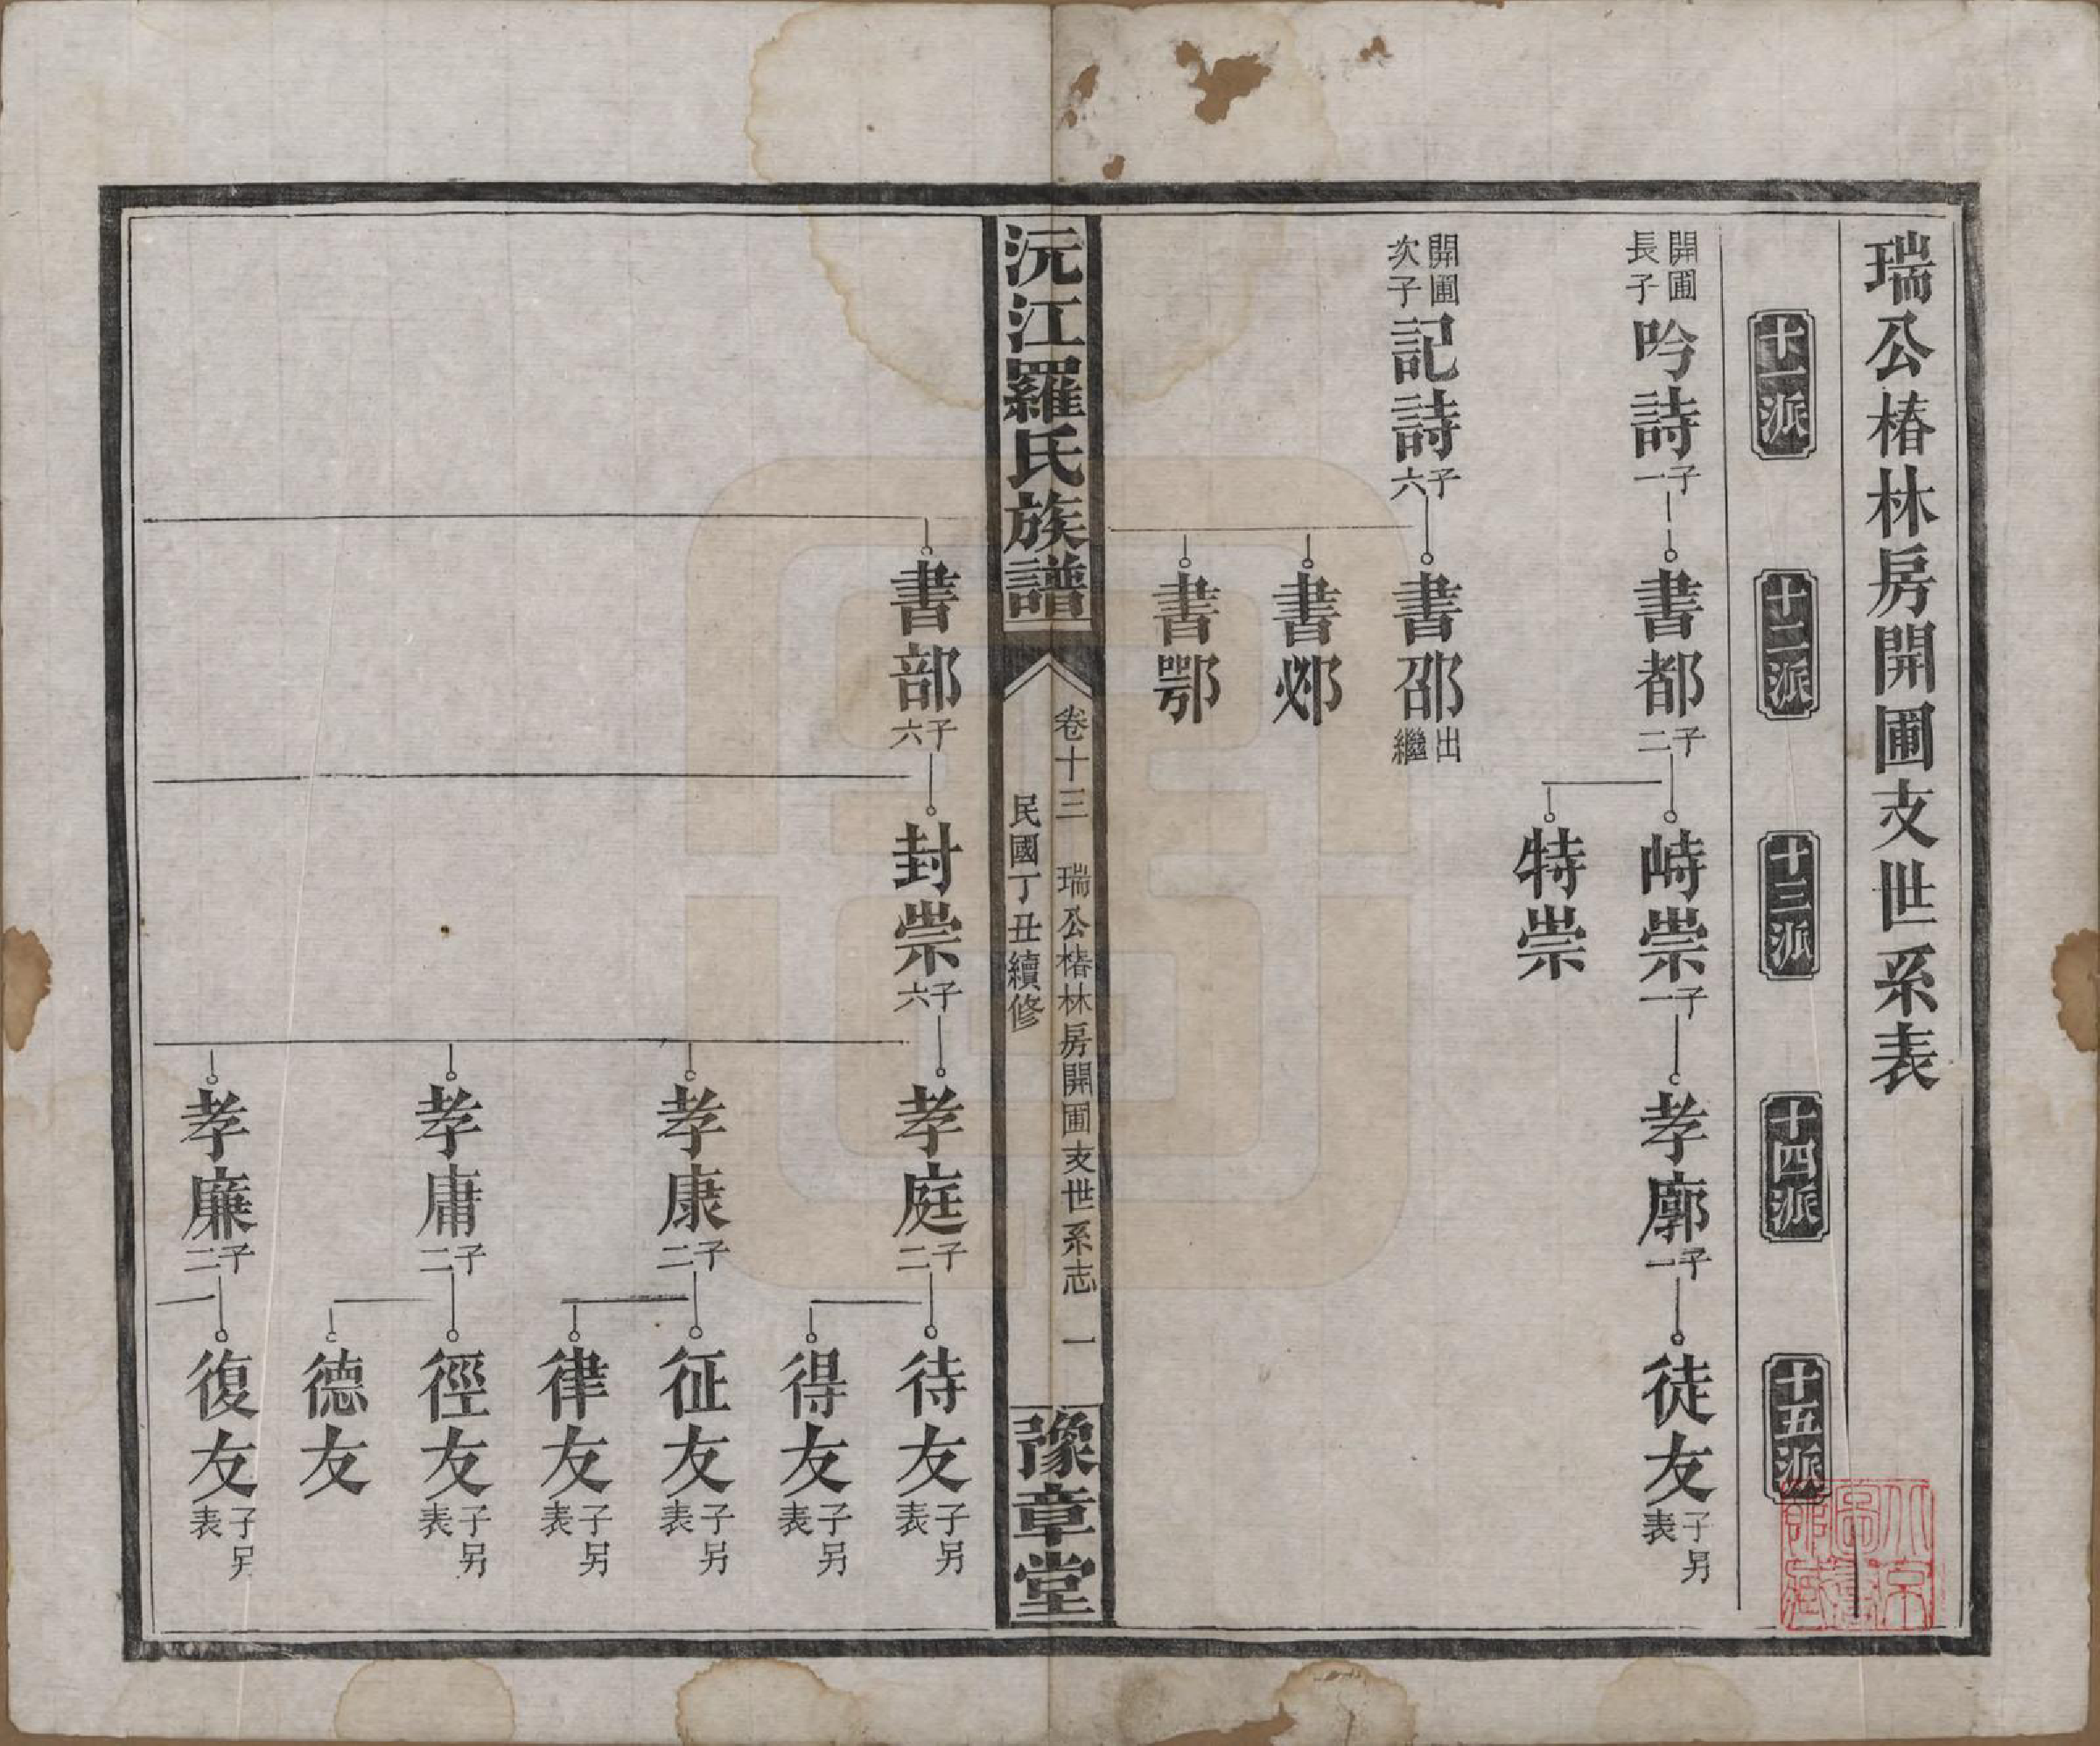 瑞公椿林房開圃支世系表
十一派
十二派
十三派
十四派
十五派
開圃
長子
吟詩
子一
書都
子二
峙崇
子一
孝廓
子一
徒友
子另
表
特崇
開圃
次子
記詩
子六
書邵
出
繼
書邲
書鄂
沅江羅氏族譜
卷十三 瑞公椿林房開圃支世系志 一
民國丁丑續修
豫章堂
書部
子六
封崇
子六
孝庭
子二
待友
子另
表
得友
子另
表
孝康
子二
征友
子另
表
律友
子另
表
孝庸
子二
徑友
子另
表
德友
孝廉
子二
復友
子另
表
北京
圖書
館藏